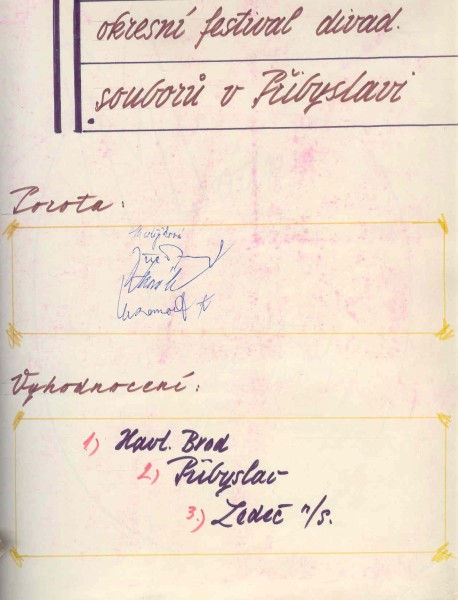 okresní festival divad.
souborů v Přibyslavi
Porota:
Vyhodnocení:
1) Havl. Brod
2) Přibyslav
3.) Ledeč n/s.